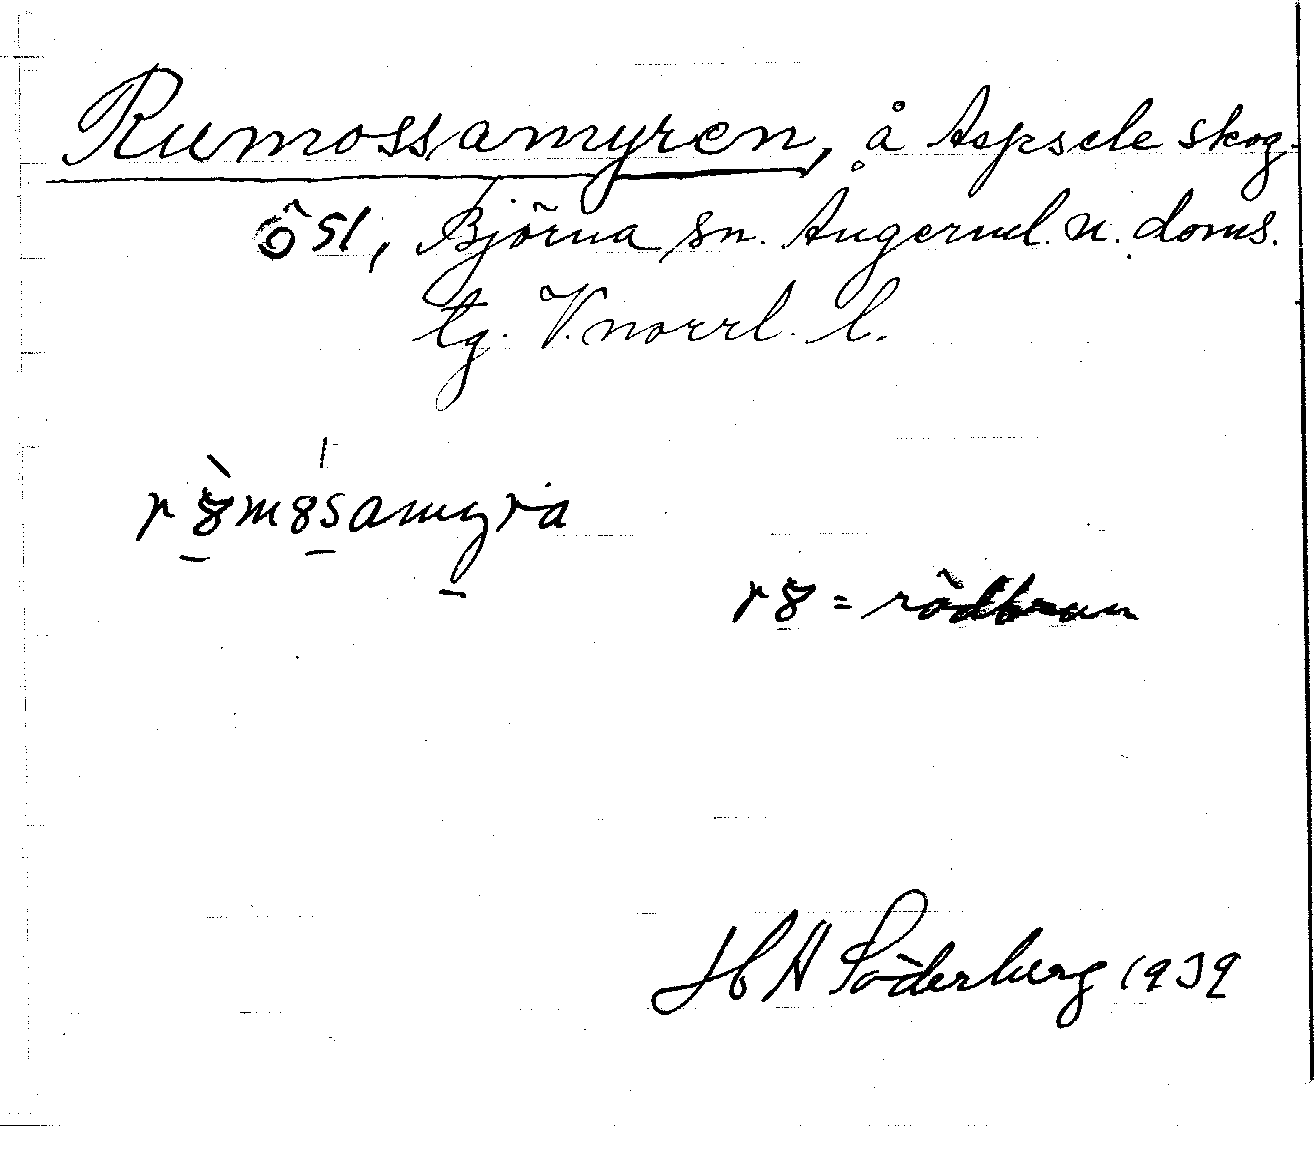 Rumossamyren, å Aspsele skog
ösl, Björna sn. Ångerml. n. doms.
tg. V.norrl. l.
= rödbrun
H A Söderberg 1939